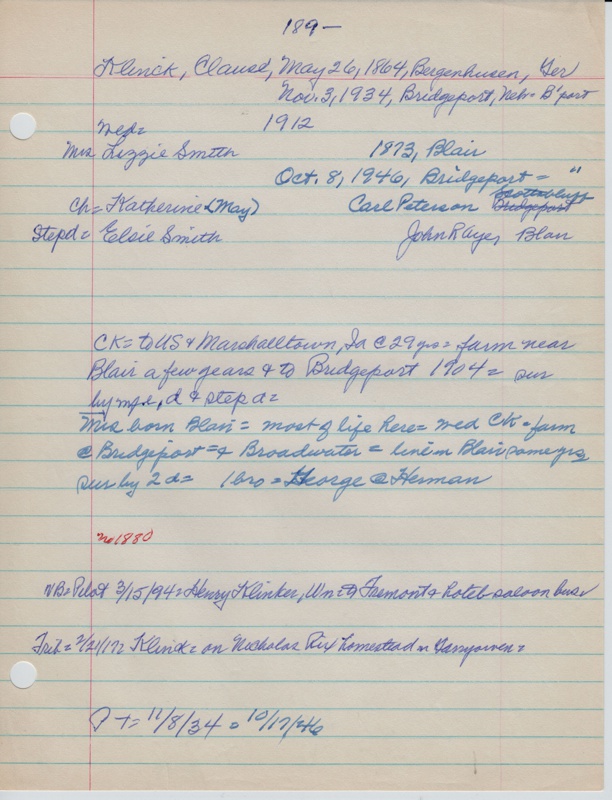 189-
Klinck, Clause, May 26, 1864, Bergenhusen, Ger
Nov. 3, 1934, Bridgeport, Neb = B'port
wed = 1912
Mrs Lizzie Smith 1873, Blair
Oct. 8, 1946, Bridgeport = "
Ch = Katherine (May) Carl Peterson Scottsbluff
Stepd = Elsie Smith John R Ayes, Blair
CK = to US & Marshalltown, Ia @ 29 yrs = farm near
Blair a few years & to Bridgeport 1904 = sur
by wife, d & step d =
Mrs born Blair = most of life here = wed CK = farm
@ Bridgeport = & Broadwater = live in Blair some yrs
sur by 2 d = 1 bro = George @ Herman
no 1880
NB = Pilot 3/15/94 = Henry Klinker, Wn = to Fremont & hotel = saloon bus =
Trib = 2/21/17 = Klinck = on Nicholas Rix homestead in Garryowen =
P T = 11/8/34 = 10/17/46